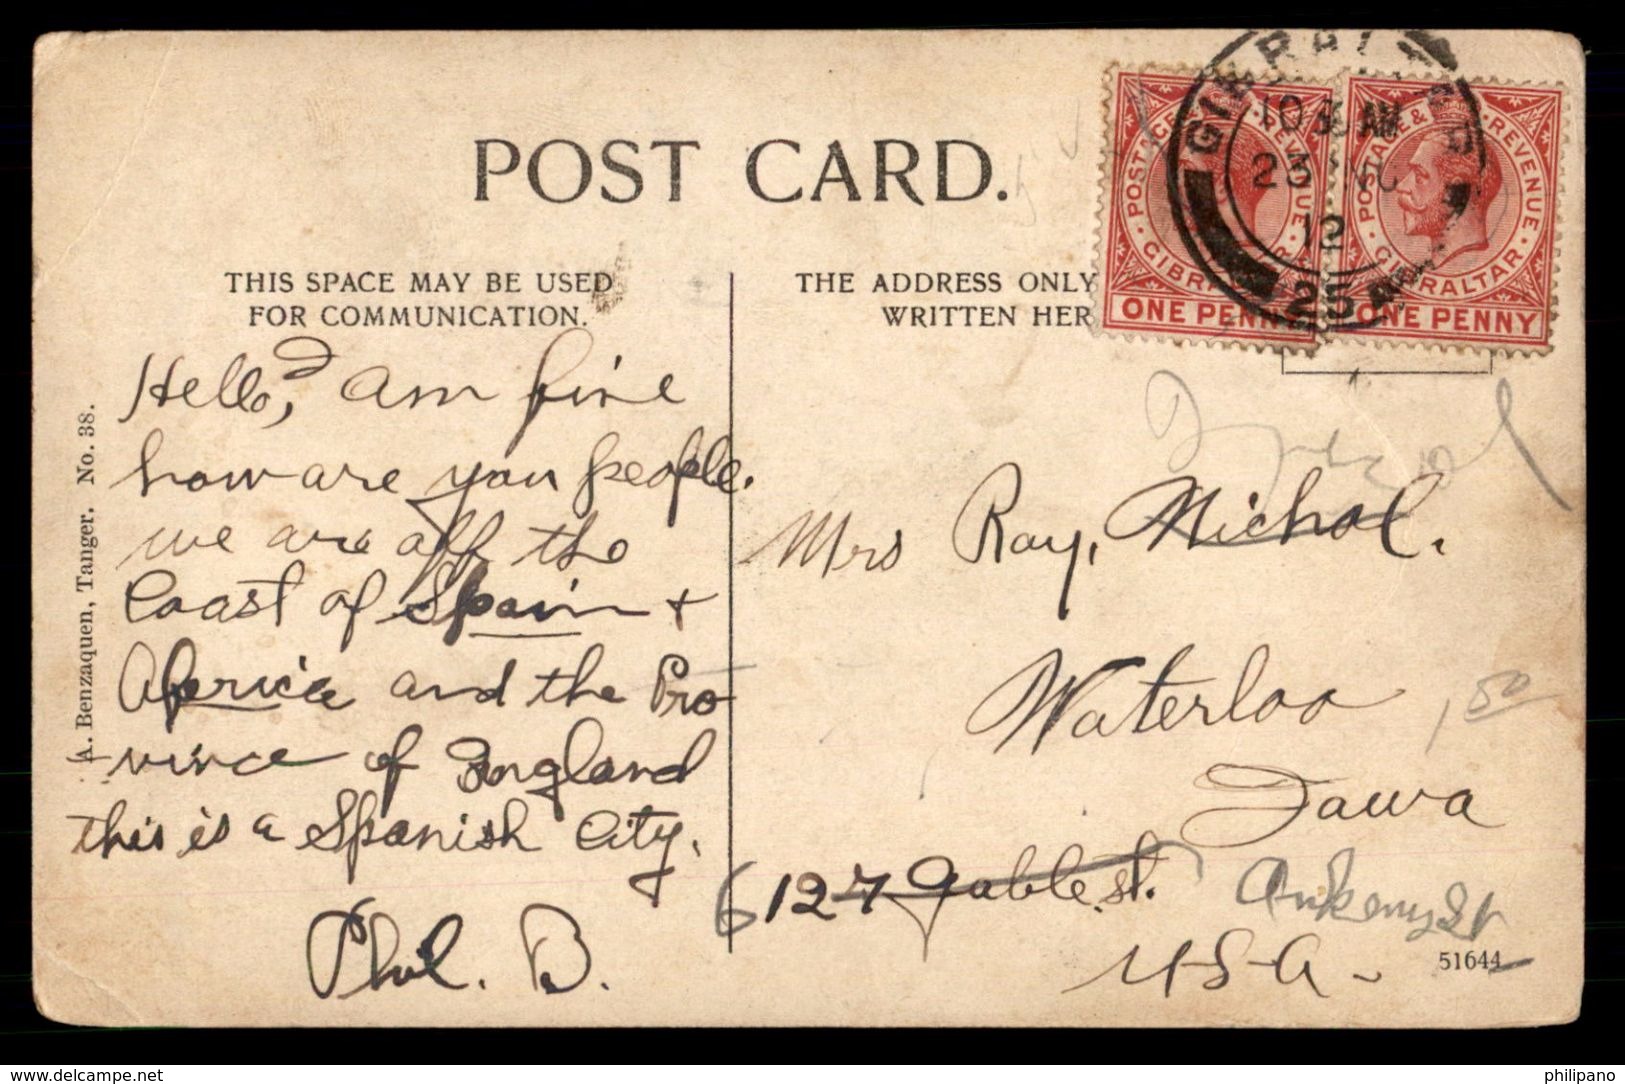 POST CARD.
THIS SPACE MAY BE USED
FOR COMMUNICATION.
THE ADDRESS ONLY
WRITTEN HER
POSTAGE & REVENUE
GIBRALTAR
ONE PENNY
POSTAGE & REVENUE
GIBRALTAR
ONE PENNY
GIBRALTAR
10 AM
12
25
A. Benzaquen, Tanger. No. 38.
Hello, am fine
how are you people.
we are off the
Coast of Spain +
Africa and the Pro
-vince of England
this is a Spanish City.
Phil. B.
Mrs Ray, Nichol.
Waterloo
Iowa
6 127 Gable st. Ankeny St
U-S-A-
1,50
51644
www.delcampe.net
philipano